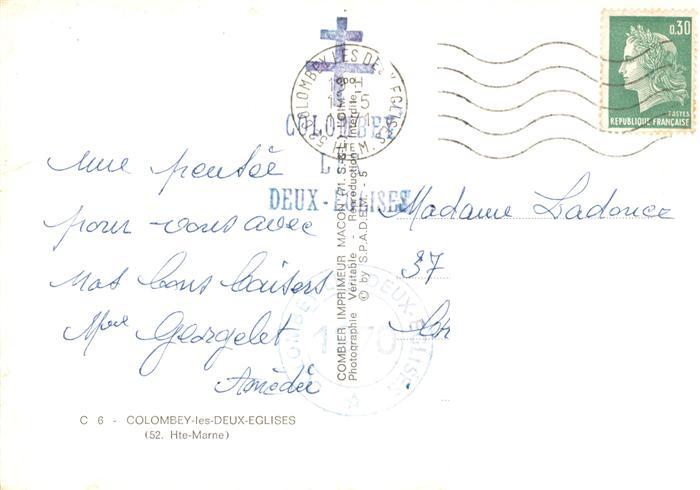 une pensée
pour vous avec
nos bons baisers
Mme Georgelet
Amédée
C 6 - COLOMBEY-les-DEUX-EGLISES
(52. Hte-Marne)
COLOMBEY
DEUX-EGLISES
COLOMBEY LES DEUX EGLISES
52 Hte M.
COMBIER IMPRIMEUR MACON
Photographie Véritable - Reproduction Interdite
© by S.P.A.D.E.M. - 5
DEUX-EGLISES
1970
0,30
POSTES
REPUBLIQUE FRANÇAISE
Madame Ladouce
37